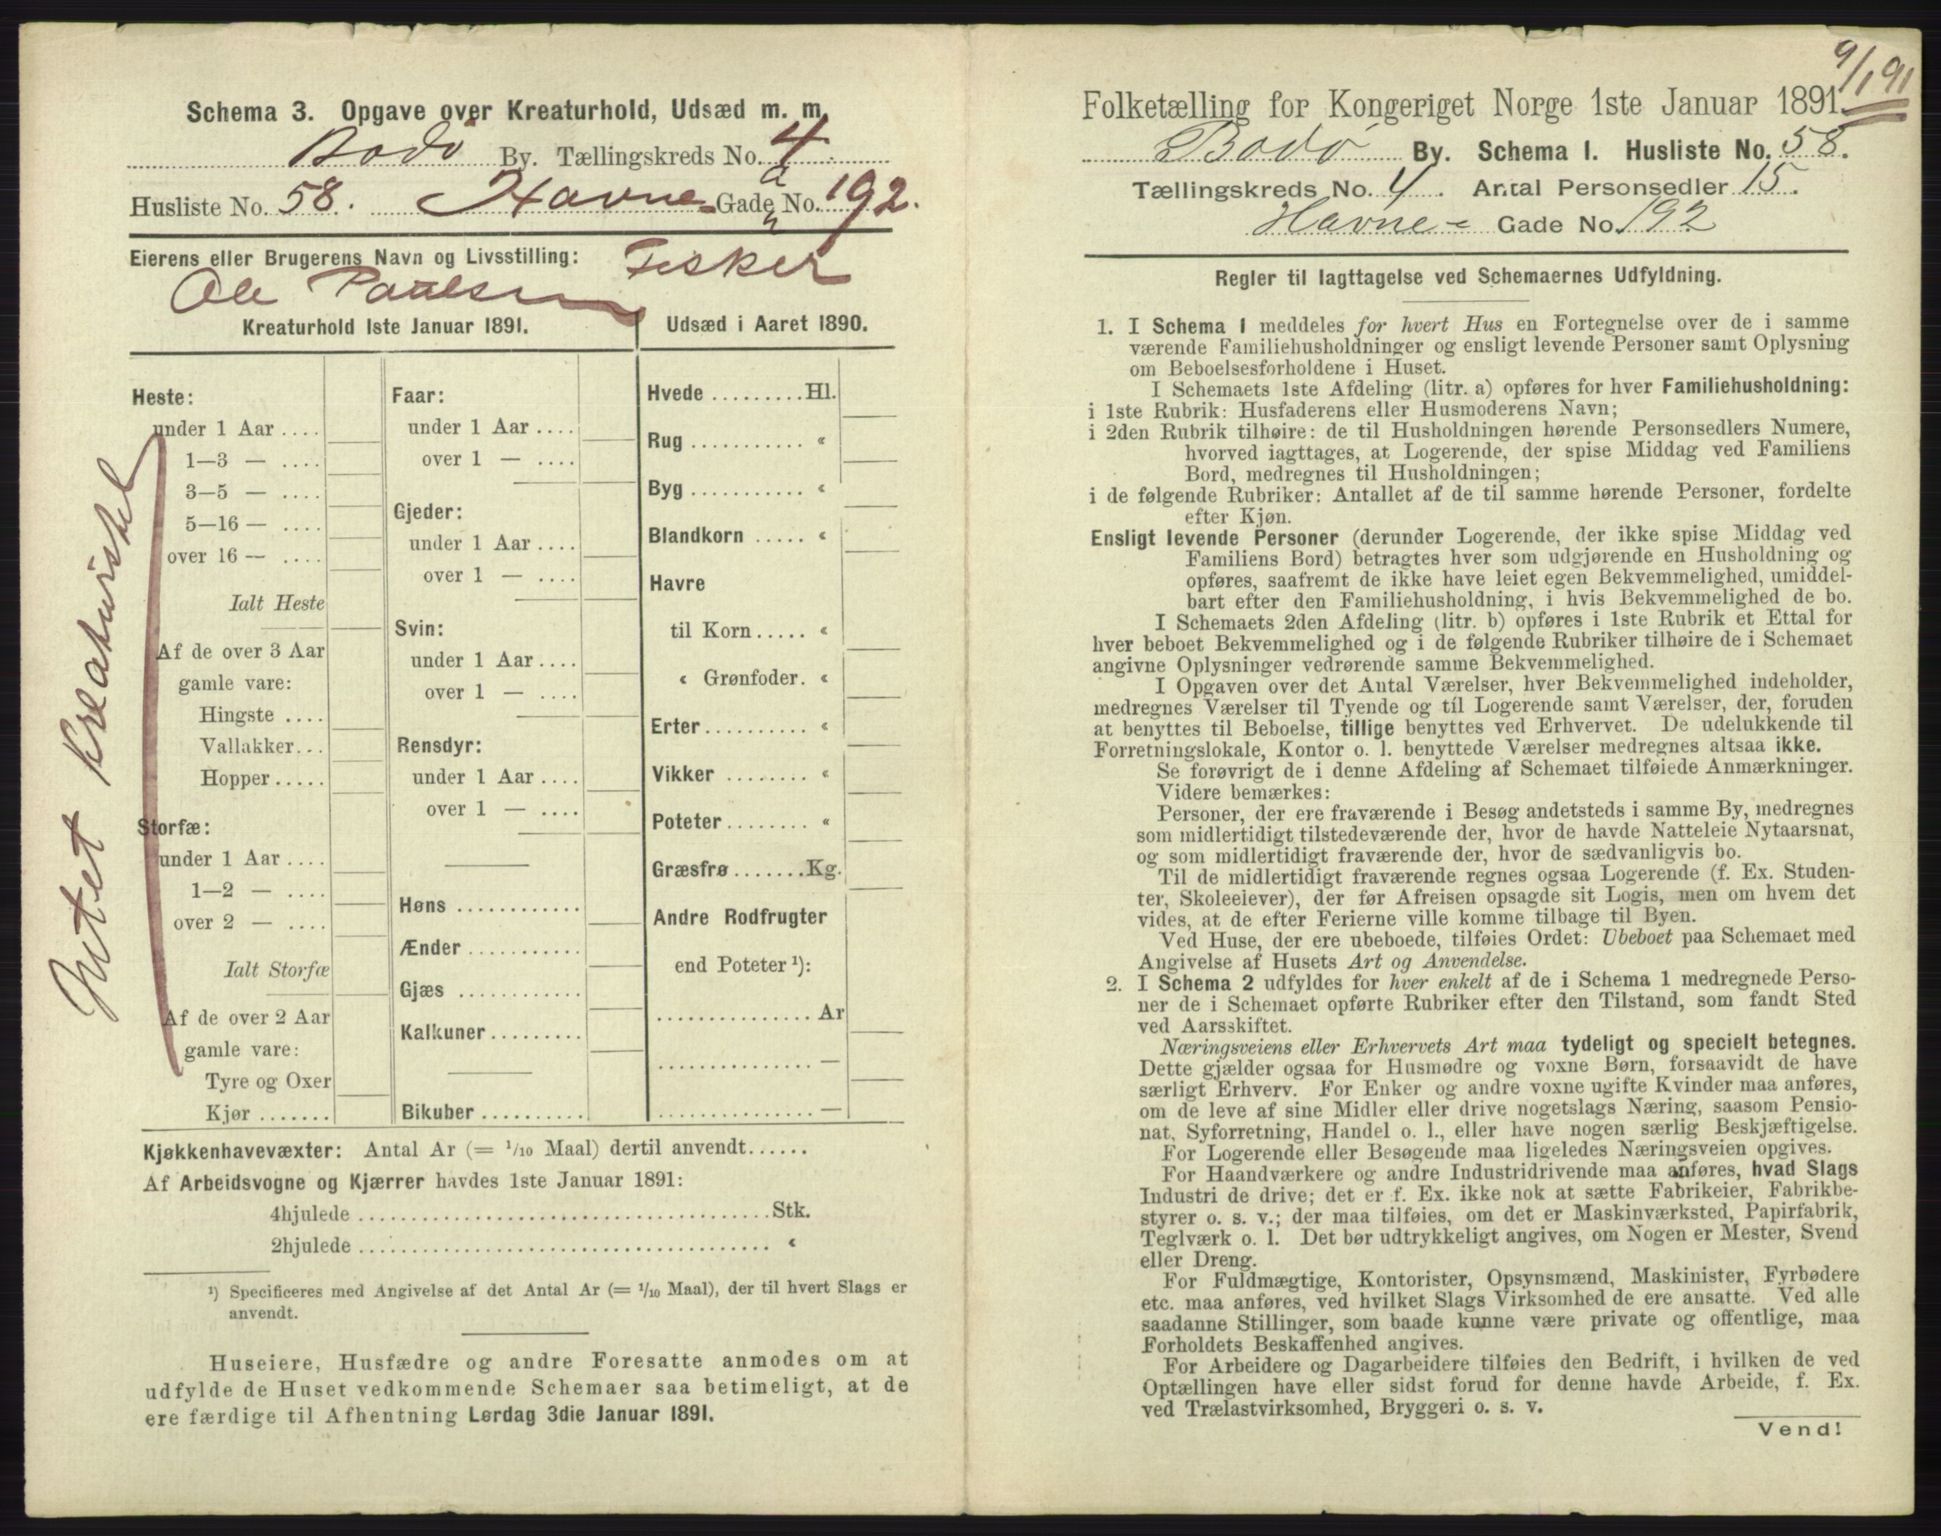 Schema 3. Opgave over Kreaturhold, Udsæd m. m.
Bodø By. Tællingskreds No. 4
Husliste No. 58. Havne- Gaden No. 192.
Eierens eller Brugerens Navn og Livsstilling: Fisker
Ole Paulsen
Kreaturhold 1ste Januar 1891.
Heste:
under 1 Aar ....
1—3 — ....
3—5 — ....
5—16 — ....
over 16 — ....
Ialt Heste
Af de over 3 Aar
gamle vare:
Hingste ....
Vallakker...
Hopper .....
Storfæ:
under 1 Aar ....
1—2 — ....
over 2 — ....
Ialt Storfæ
Af de over 2 Aar
gamle vare:
Tyre og Oxer
Kjør .......
Intet
Faar:
under 1 Aar ....
over 1 — ....
Gjeder:
under 1 Aar ....
over 1 — ....
Svin:
under 1 Aar ....
over 1 — ....
Rensdyr:
under 1 Aar ....
over 1 — ....
Høns ............
Ænder ..........
Gjæs ............
Kalkuner.........
Bikuber ..........
Udsæd i Aaret 1890.
Hvede .........Hl.
Rug ........... «
Byg ........... «
Blandkorn ..... «
Havre
til Korn ..... «
« Grønfoder. «
Erter.......... «
Vikker ........ «
Poteter........ «
Græsfrø .......Kg.
Andre Rodfrugter
end Poteter ¹):
............... Ar
............... —
............... —
Kjøkkenhavevæxter: Antal Ar (= 1/10 Maal) dertil anvendt......
Af Arbeidsvogne og Kjærrer havdes 1ste Januar 1891:
4hjulede ........................................Stk.
2hjulede ........................................ «
¹) Specificeres med Angivelse af det Antal Ar (= 1/10 Maal), der til hvert Slags er
anvendt.
Huseiere, Husfædre og andre Foresatte anmodes om at
udfylde de Huset vedkommende Schemaer saa betimeligt, at de
ere færdige til Afhentning Lørdag 3die Januar 1891.
9/1 91
Folketælling for Kongeriget Norge 1ste Januar 1891.
Bodø By. Schema 1. Husliste No. 58.
Tællingskreds No. 4. Antal Personsedler 15.
Havne- Gade No. 192
Regler til Iagttagelse ved Schemaernes Udfyldning.
1. I Schema 1 meddeles for hvert Hus en Fortegnelse over de i samme
værende Familiehusholdninger og ensligt levende Personer samt Oplysning
om Beboelsesforholdene i Huset.
I Schemaets 1ste Afdeling (litr. a) opføres for hver Familiehusholdning:
i 1ste Rubrik: Husfaderens eller Husmoderens Navn;
i 2den Rubrik tilhøire: de til Husholdningen hørende Personsedlers Numere,
hvorved iagttages, at Logerende, der spise Middag ved Familiens
Bord, medregnes til Husholdningen;
i de følgende Rubriker: Antallet af de til samme hørende Personer, fordelte
efter Kjøn.
Ensligt levende Personer (derunder Logerende, der ikke spise Middag ved
Familiens Bord) betragtes hver som udgjørende en Husholdning og
opføres, saafremt de ikke have leiet egen Bekvemmelighed, umiddel-
bart efter den Familiehusholdning, i hvis Bekvemmelighed de bo.
I Schemaets 2den Afdeling (litr. b) opføres i 1ste Rubrik et Ettal for
hver beboet Bekvemmelighed og i de følgende Rubriker tilhøire de i Schemaet
angivne Oplysninger vedrørende samme Bekvemmelighed.
I Opgaven over det Antal Værelser, hver Bekvemmelighed indeholder,
medregnes Værelser til Tyende og til Logerende samt Værelser, der, foruden
at benyttes til Beboelse, tillige benyttes ved Erhvervet. De udelukkende til
Forretningslokale, Kontor o. l. benyttede Værelser medregnes altsaa ikke.
Se forøvrigt de i denne Afdeling af Schemaet tilføiede Anmærkninger.
Videre bemærkes:
Personer, der ere fraværende i Besøg andetsteds i samme By, medregnes
som midlertidigt tilstedeværende der, hvor de havde Natteleie Nytaarsnat,
og som midlertidigt fraværende der, hvor de sædvanligvis bo.
Til de midlertidigt fraværende regnes ogsaa Logerende (f. Ex. Studen-
ter, Skoleelever), der før Afreisen opsagde sit Logis, men om hvem det
vides, at de efter Ferierne ville komme tilbage til Byen.
Ved Huse, der ere ubeboede, tilføies Ordet: Ubeboet paa Schemaet med
Angivelse af Husets Art og Anvendelse.
2. I Schema 2 udfyldes for hver enkelt af de i Schema 1 medregnede Perso-
ner de i Schemaet opførte Rubriker efter den Tilstand, som fandt Sted
ved Aarsskiftet.
Næringsveiens eller Erhvervets Art maa tydeligt og specielt betegnes.
Dette gjælder ogsaa for Husmødre og voxne Børn, forsaavidt de have
særligt Erhverv. For Enker og andre voxne ugifte Kvinder maa anføres,
om de leve af sine Midler eller drive nogetslags Næring, saasom Pensio-
nat, Syforretning, Handel o. l., eller have nogen særlig Beskjæftigelse.
For Logerende eller Besøgende maa ligeledes Næringsveien opgives.
For Haandværkere og andre Industridrivende maa anføres, hvad Slags
Industri de drive; det er f. Ex. ikke nok at sætte Fabrikeier, Fabrikbe-
styrer o. s. v.; der maa tilføies, om det er Maskinværksted, Papirfabrik,
Teglværk o. l. Det bør udtrykkeligt angives, om Nogen er Mester, Svend
eller Dreng.
For Fuldmægtige, Kontorister, Opsynsmænd, Maskinister, Fyrbødere
etc. maa anføres, ved hvilket Slags Virksomhed de ere ansatte. Ved alle
saadanne Stillinger, som baade kunne være private og offentlige, maa
Forholdets Beskaffenhed angives.
For Arbeidere og Dagarbeidere tilføies den Bedrift, i hvilken de ved
Optællingen have eller sidst forud for denne havde Arbeide, f. Ex.
ved Trælastvirksomhed, Bryggeri o. s. v.
Vend!